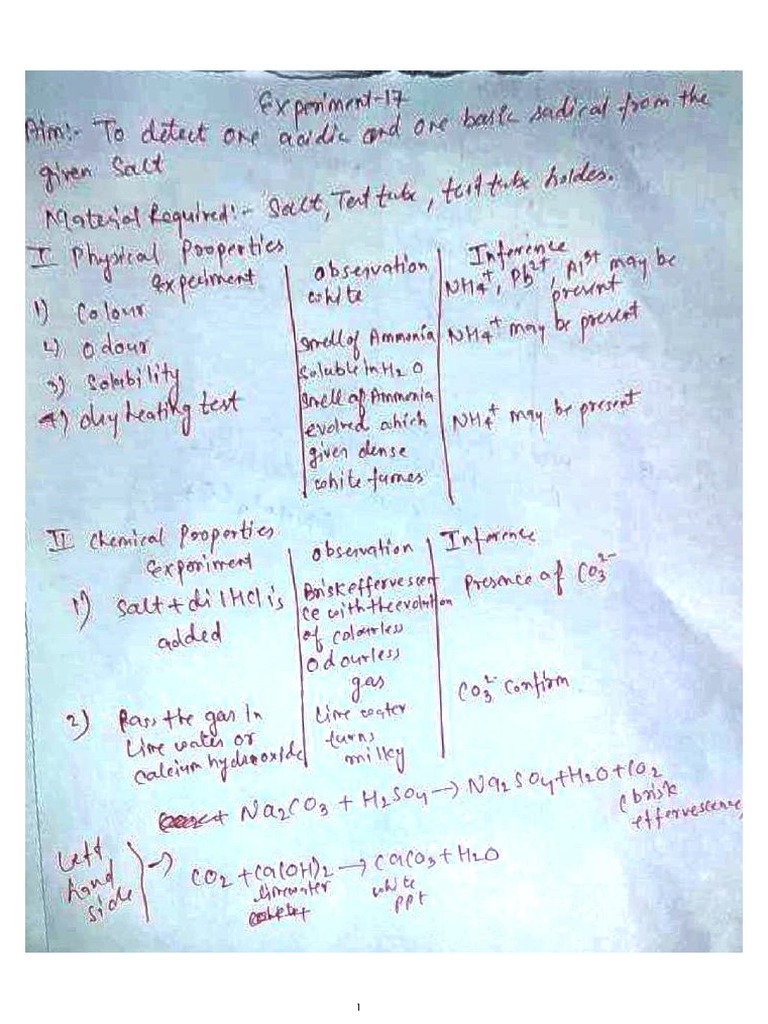 Experiment-17
Aim:- To detect one acidic and one basic radical from the
given Salt
Material Required:- Salt, Test tube, test tube holder.
I Physical Properties
Experiment
Observation
Inference
1) Colour
white
NH4+, Pb2+, Al3+ may be
present
2) Odour
smell of Ammonia
NH4+ may be present
3) Solubility
Soluble in H2O
4) dry heating test
smell of Ammonia
evolved which
given dense
white fumes
NH4+ may be present
II Chemical Properties
Experiment
Observation
Inference
1) Salt + dil HCl is
added
Brisk effervescen
ce with the evolution
of colourless
odourless
gas
Presence of CO3 2-
2) Pass the gas in
Lime water or
calcium hydroxide
Lime water
turns
milky
CO3 2- Confirm
Na2CO3 + H2SO4 → Na2SO4 + H2O + CO2
(brisk
effervescence)
Left
hand
side
→
CO2 + Ca(OH)2 → CaCO3 + H2O
limewater
white
ppt
1